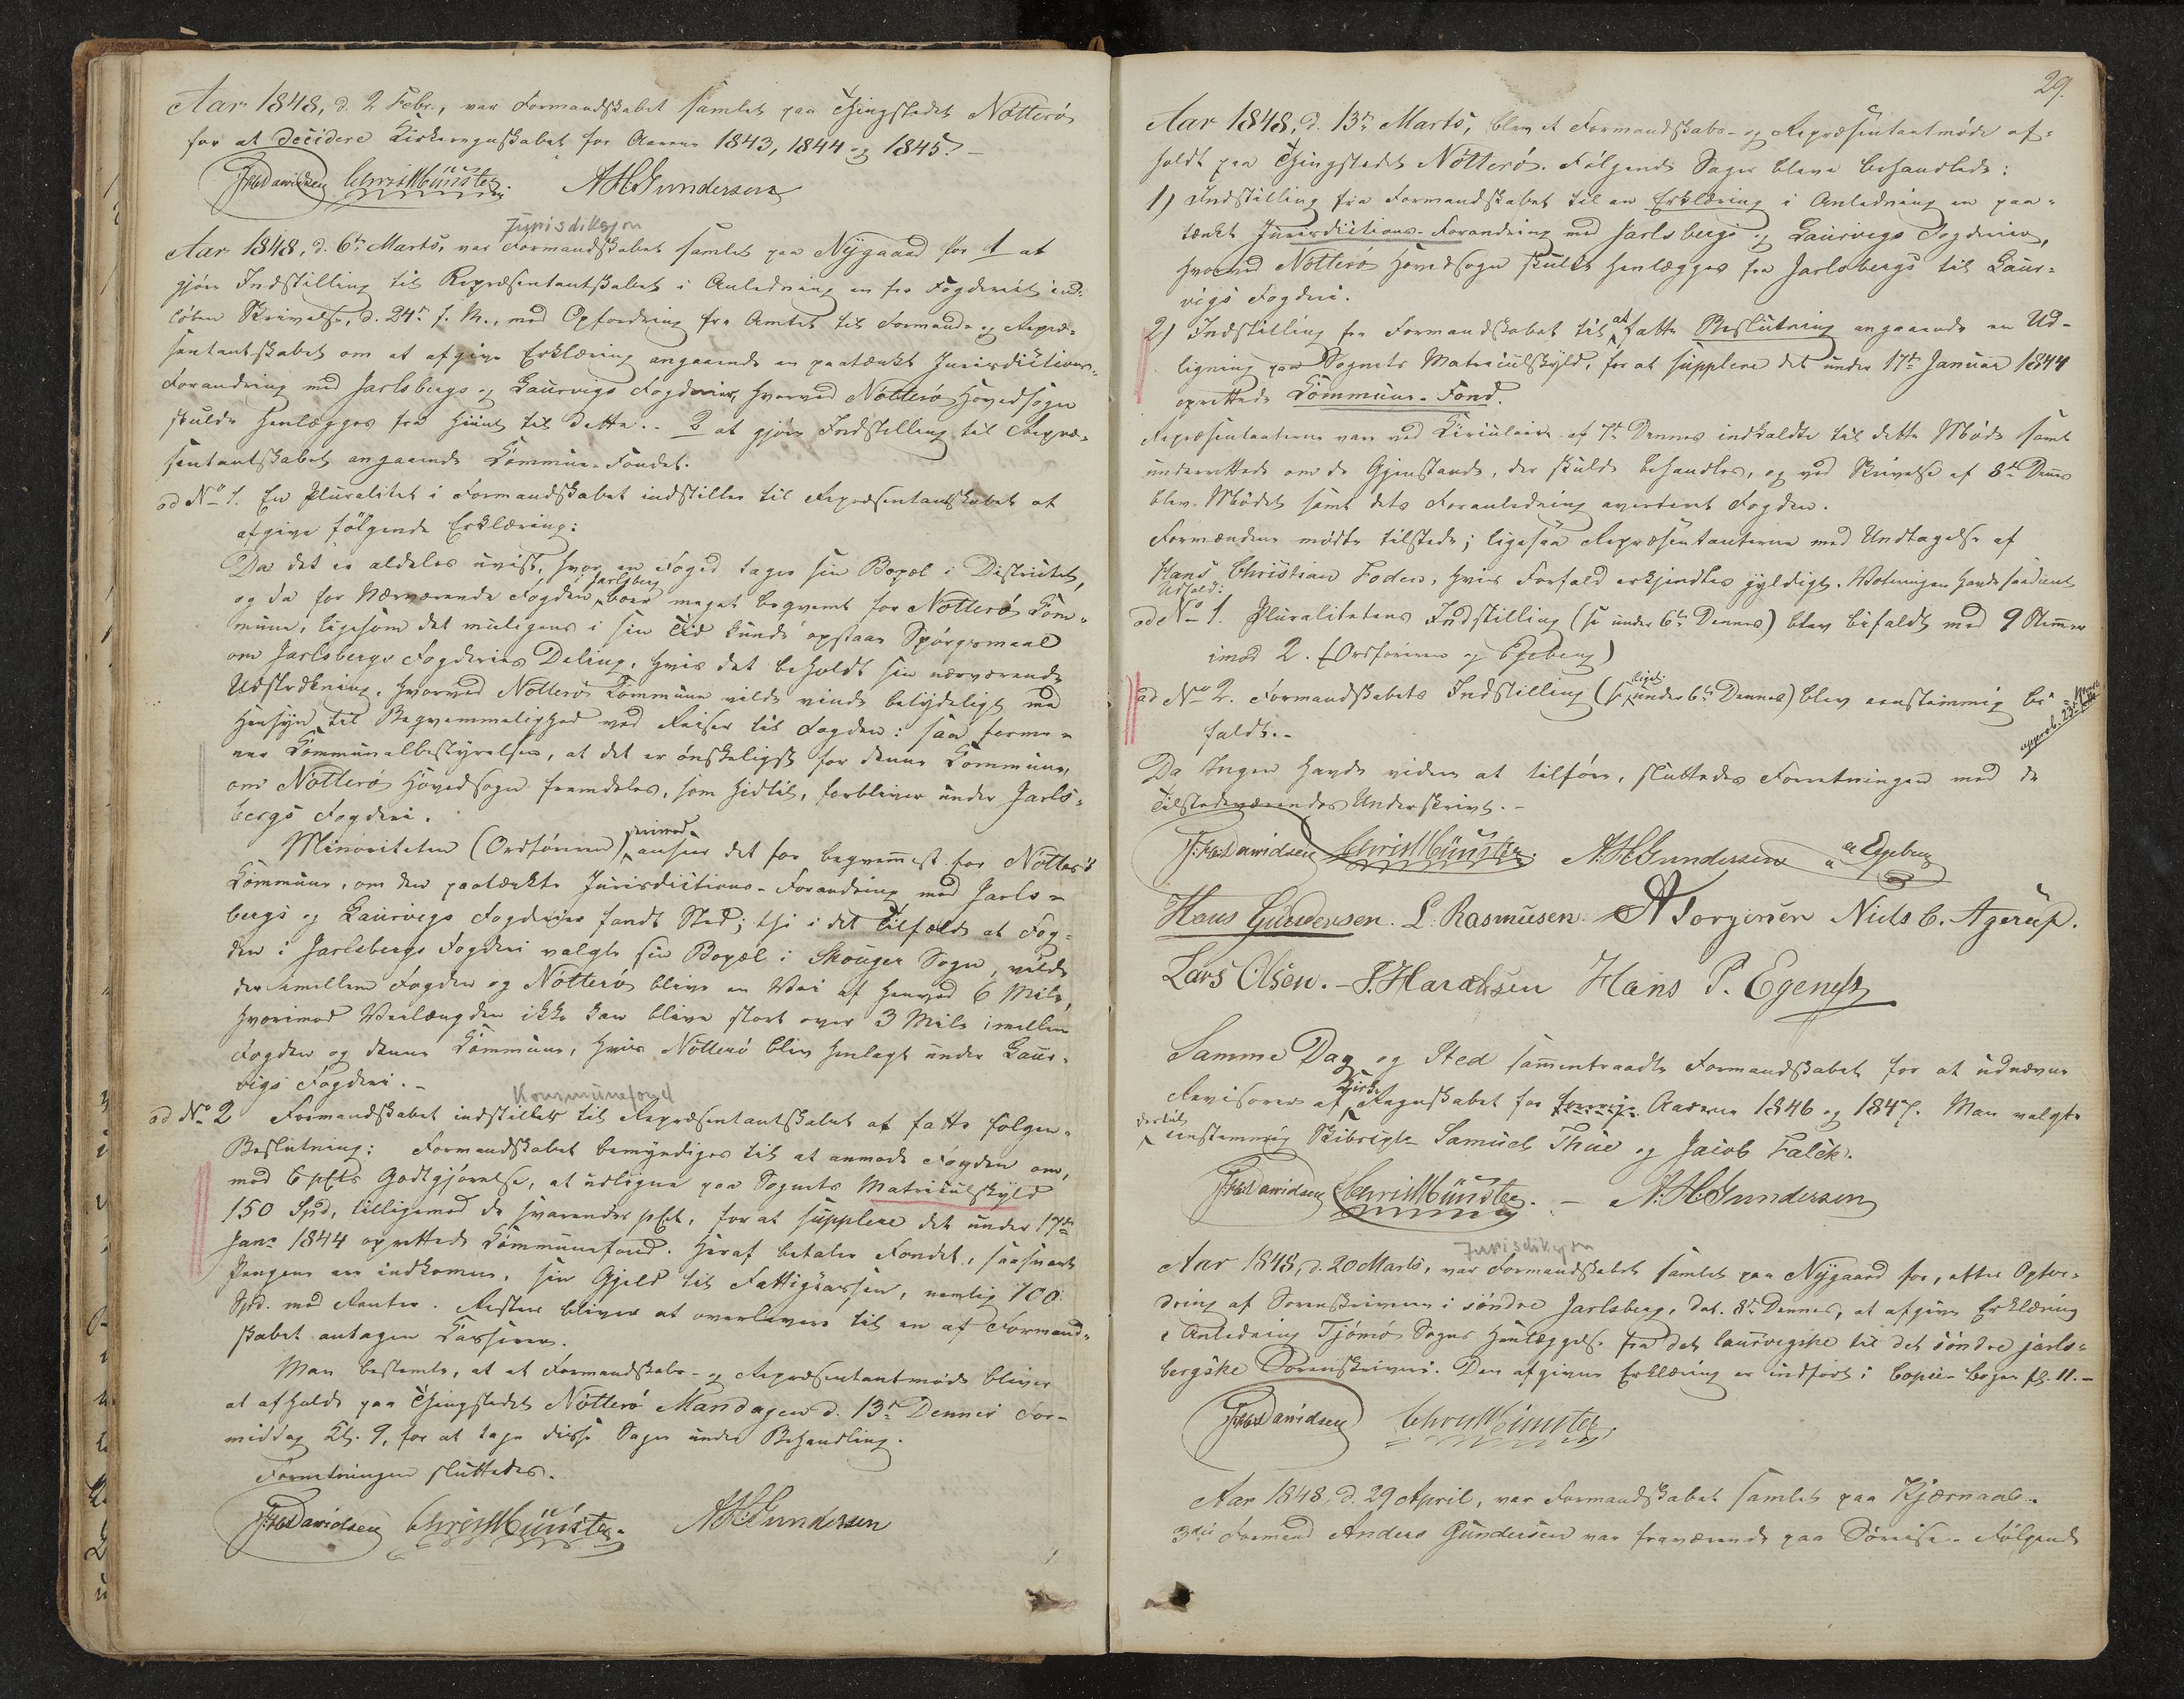 Aar 1848, d. 2 Febr., var Formandskabet samlet paa Thingstedet Nötterö
for at decidere Kirkeregnskabet for Aarene 1843, 1844 og 1845.-
Fr. Davidsen Chris Münster. A.H. Gundersen
Jurisdiksjon
Aar 1848, d. 6te Marts, var Formandskabet samlet paa Nÿgaard for 1 at
gjöre Indstilling til Repræsentantskabet i Anledning en fra Fogderiet ind-
löben Skrivelse, d. 24de f. M., med Opfordring fra Amtet til Formands- og Repræ-
sentantskabet om at afgive Erklæring angaaende en paatænkt Jurisdictions-
Forandring med Jarlsbergs og Laurvigs Fogderier, hvorved Nötterö Hovedsogn
skulde henlægges fra hiint til dette. - 2 at gjöre Indstilling til Repræ-
sentantskabet angaaende Kommune-Fondet.
ad No 1. En Pluralitet i Formandskabet indstiller til Repræsentantskabet at
afgive fölgende Erklæring:
Da det er aldeles uvist, hvor en Foged tager sin Bopæl i Districtet,
og da for Nærværende Fogden i Jarlsberg boer meget beqvemt for Nötterö Kom-
mune, ligesom det muligens i sin Tid kunde opstaae Spörgsmaal
om Jarlsbergs Fogderies Deling, hvis det beholdt sin nærværende
Udstrækning, hvorved Nötterö Kommune vilde vinde betydeligt med
Hensyn til Beqvemmelighed ved Reiser til Fogden: saa formee-
ner Kommunalbestyrelsen, at det er önskeligst for denne Kommune,
om Nötterö Hovedsogn fremdeles, som hidtil, forbliver under Jarls-
bergs Fogderi.
Minoriteten (Ordföreren) derimod anseer det for beqvemmest for Nötterö
Kommune, om den paatænkte Jurisdictions-Forandring med Jarls-
bergs og Laurvigs Fogderier fandt Sted; thi i det Tilfælde at Fog-
den i Jarlsbergs Fogderi valgte sin Bopæl i Skouger Sogn, vilde
der imellem Fogden og Nötterö blive en Vei af henved 6 Mile,
hvorimod Veilængden ikke kan blive stort over 3 Mile imellem
Fogden og denne Kommune, hvis Nötterö blev henlagt under Laur-
vigs Fogderi. -
Kommunefond
ad No 2 Formandskabet indstiller til Repræsentantskabet at fatte fölgen-
Beslutning: Formandskabet bemyndiges til at anmode Fogden om,
mod 6 pCts Godtgjörelse, at udligne paa Sognets Matrikulskyld
150 Spd, tilligemed de svarende pCt, for at supplere det under 17de
Janr 1844 oprettede Kommunefond. Heraf betaler Fondet, saasnart
Pengene ere indkomne, sin Gjeld til Fattigkassen, nemlig 100
Spd. med Renter. Resten bliver at overlevere til en af Formand-
skabet antagen Kasserer.
Man bestemte, at et Formandskabs- og Repræsentantmöde bliver
at afholde paa Thingstedet Nötterö Mandagen d. 13de Dennes For-
middag Kl. 9, for at tage disse Sager under Behandling.
Forretningen sluttedes.
Fr. Davidsen Chris Münster. A.H. Gundersen
29.
Aar 1848, d. 13de Marts, blev et Formandskabs- og Repræsentantmöde af-
holdt paa Thingstedet Nötterö. Fölgende Sager bleve behandlede:
1) Indstilling fra Formandskabet til en Erklæring i Anledning en paa-
tænkt Jurisdictions-Forandring med Jarlsbergs og Laurvigs Fogderier,
hvorved Nötterö Hovedsogn skulde henlægges fra Jarlsbergs til Laur-
vigs Fogderi.
2) Indstilling fra Formandskabet til at fatte Beslutning angaaende en Ud-
ligning paa Sognets Matriculskyld, for at supplere det under 17de Januar 1844
oprettede Kommune-Fond.
Repræsentanterne vare ved Circulaire af 7de Dennes indkaldte til dette Möde samt
underrettede om de Gjenstande, der skulde behandles, og ved Skrivelse af 8de Dennes
blev Mödet samt dets Foranledning averteret Fogden.
Formændene mödte tilstede; ligesaa Repræsentanterne med Undtagelse af
Hans Christian Foden, hvis Forfald erkjendtes gyldigt. Voteringen havde saadant
Udfald:
ad No 1. Pluralitetens Indstilling (se under 6te Dennes) blev bifaldt med 9 Stemmer
imod 2. (Ordföreren og Egeberg)
ad No 2. Formandskabets Indstilling (se under 6te Dennes) blev eenstemmig bi-
faldt. -
approb. 23
Da Ingen havde videre at tilföre, sluttedes Forretningen med de
Tilstedeværendes Underskrivt. -
Fr. Davidsen Chris Münster. A.H. Gundersen Egeberg
Hans Gundersen. L. Rasmusen. A Torgersen Niels C. Agerup.
Lars Olsen. - J. Haraldsen Hans P. Egenes
Samme Dag og Sted sammentraadte Formandskabet for at udnævne
Revisorer af Kirke Regnskabet for Aarene 1846 og 1847. Man valgte
dertil eenstemmig Skibscpt. Samuel Thue og Jacob Falck.
Fr. Davidsen Chris Münster. - A.H. Gundersen
Jurisdiksjon
Aar 1848, d. 20 Marts, var Formandskabet samlet paa Nÿgaard for, efter Opfor-
dring af Sorenskriveren i söndre Jarlsberg, dat. 8de Dennes, at afgive Erklæring
i Anledning Tjömö Sogns Henlæggelse fra det laurvigske til det söndre jarls-
bergske Sorenskriveri. Den afgivne Erklæring er indfört i Copie-bogen fl. 11. -
Fr. Davidsen Chris Münster.
Aar 1848, d. 29 April, var Formandskabet samlet paa Kjærnaas.
3die Formand Anders Gundersen var fraværende paa Söreise. Fölgende